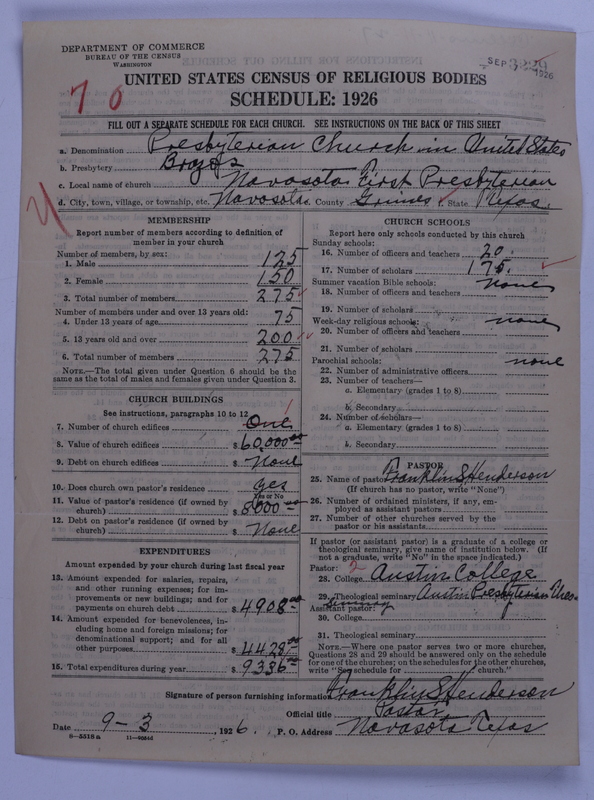 DEPARTMENT OF COMMERCE
BUREAU OF THE CENSUS
WASHINGTON
SEP 1926
7 0
UNITED STATES CENSUS OF RELIGIOUS BODIES
SCHEDULE: 1926
FILL OUT A SEPARATE SCHEDULE FOR EACH CHURCH. SEE INSTRUCTIONS ON THE BACK OF THIS SHEET
a. Denomination Presbyterian Church in United States
b. Presbytery Brazos
c. Local name of church Navasota First Presbyterian
d. City, town, village, or township, etc. Navasota e. County Grimes f. State Texas.
MEMBERSHIP
Report number of members according to definition of member in your church
Number of members, by sex:
1. Male 125
2. Female 150
3. Total number of members 275
Number of members under and over 13 years old:
4. Under 13 years of age 75
5. 13 years old and over 200
6. Total number of members 275
NOTE.—The total given under Question 6 should be the
same as the total of males and females given under Question 3.
CHURCH BUILDINGS
See instructions, paragraphs 10 to 12
7. Number of church edifices One
8. Value of church edifices $ 60,000 00
9. Debt on church edifices $ None
10. Does church own pastor's residence? Yes
Yes or No
11. Value of pastor's residence (if owned by
church) $ 8000 00
12. Debt on pastor's residence (if owned by
church) $ None
EXPENDITURES
Amount expended by your church during last fiscal year
13. Amount expended for salaries, repairs,
and other running expenses; for im-
provements or new buildings; and for
payments on church debt $ 4908 00
14. Amount expended for benevolences, in-
cluding home and foreign missions; for
denominational support; and for all
other purposes $ 4428 00
15. Total expenditures during year $ 9336 00
CHURCH SCHOOLS
Report here only schools conducted by this church
Sunday schools:
16. Number of officers and teachers 20
17. Number of scholars 175.
Summer vacation Bible schools: none
18. Number of officers and teachers
19. Number of scholars
Week-day religious schools: none
20. Number of officers and teachers
21. Number of scholars
Parochial schools: none
22. Number of administrative officers
23. Number of teachers—
a. Elementary (grades 1 to 8)
b. Secondary
24. Number of scholars—
a. Elementary (grades 1 to 8)
b. Secondary
PASTOR
25. Name of pastor Franklin S Henderson
(If church has no pastor, write "None")
26. Number of ordained ministers, if any, em-
ployed as assistant pastors
27. Number of other churches served by the
pastor or his assistants
If pastor (or assistant pastor) is a graduate of a college or
theological seminary, give name of institution below. (If
not a graduate, write "No" in the space indicated.)
Pastor: 2
28. College Austin College
29. Theological seminary Austin Presbyterian Theo-
Seminary
Assistant pastor:
30. College
31. Theological seminary
NOTE.—Where one pastor serves two or more churches,
Questions 28 and 29 should be answered only on the schedule
for one of the churches; on the schedules for the other churches,
write "See schedule for church."
Signature of person furnishing information Franklin S Henderson
Official title Pastor
Date 9-3, 1926. P. O. Address Navasota Texas
8—5518a